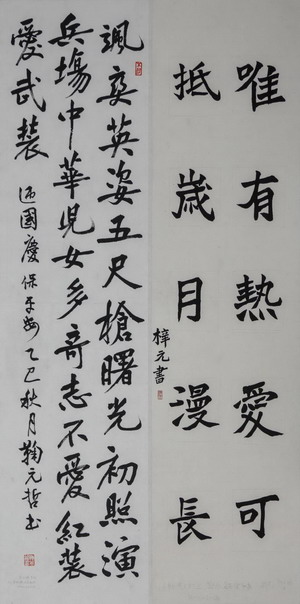 唯有熱愛可
抵歲月漫長
梓元書
颯爽英姿五尺槍曙光初照演
兵場中華兒女多奇志不愛紅裝
愛武裝 迎國慶保平安乙巳秋月鞠元哲书